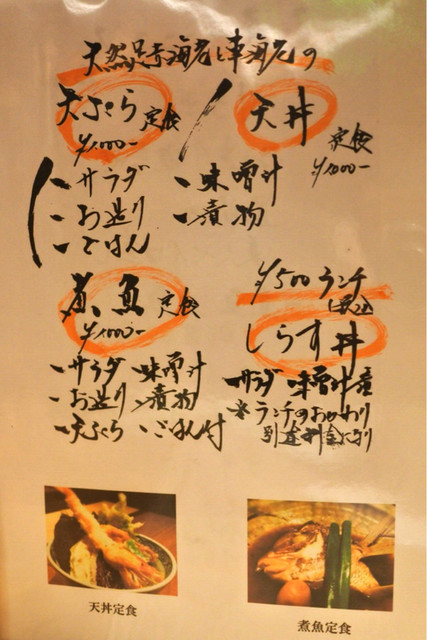 天然足赤海老と車海老の
天ぷら定食
¥1000-
天丼
定食
¥1000-
一サラダ
一お造り
一ごはん
一味噌汁
一漬物
煮魚定食
¥1000-
一サラダ 一味噌汁
一お造り 一漬物
一天ぷら 一ごはん付
¥500ランチ
(税込)
しらす丼
一サラダ 一味噌汁
※ランチのおかわり
別途料金になり
天丼定食
煮魚定食